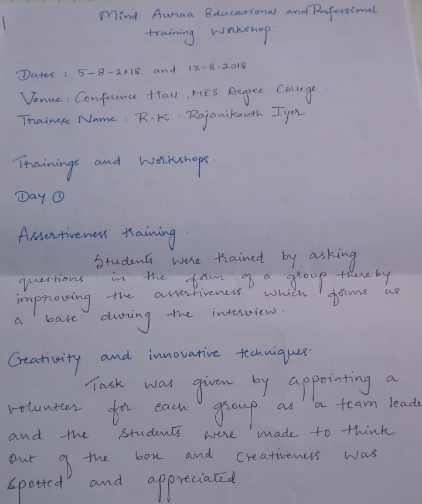 Mind Auraa Educational and Professional
training Workshop
Dates : 5-8-2018 and 12-8-2018
Venue : Conference Hall , MES Degree College
Trainers Name : R.K. Rajanikanth Iyer
Trainings and Workshops.
Day ①
Assertiveness training.
Students were trained by asking
questions in the form of a group thereby
improving the assertiveness which forms as
a base during the interview.
Creativity and innovative techniques.
Task was given by appointing a
volunteer for each group as a team leade
and the students were made to think
out of the box and creativeness was
spotted and appreciated